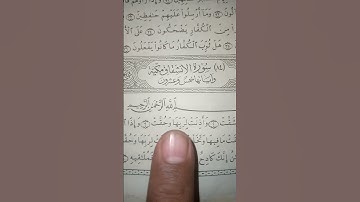 لُونَ ۝ وَمَآ أُرْسِلُوا۟ عَلَيْهِمْ حَٰفِظِينَ ۝
مِنَ ٱلْكُفَّارِ يَضْحَكُونَ ۝ عَلَى ٱلْ
هَلْ ثُوِّبَ ٱلْكُفَّارُ مَا كَانُوا۟ يَفْعَلُونَ ۝
(٨٤) سُورَةُ الانْشِقَاقِ مَكِّيَّة
وَآيَاتُهَا خَمْسٌ وَعِشْرُونَ
ٱللَّهِ ٱلرَّحْمَٰنِ ٱلرَّحِيمِ
شَقَّتْ ۝ وَأَذِنَتْ لِرَبِّهَا وَحُقَّتْ ۝ وَإِذَا ٱ
مَا فِيهَا وَتَخَ لِرَبِّهَا وَحُقَّتْ ۝
إِنَّكَ كَادِحٌ فَمُلَٰقِيهِ ۝